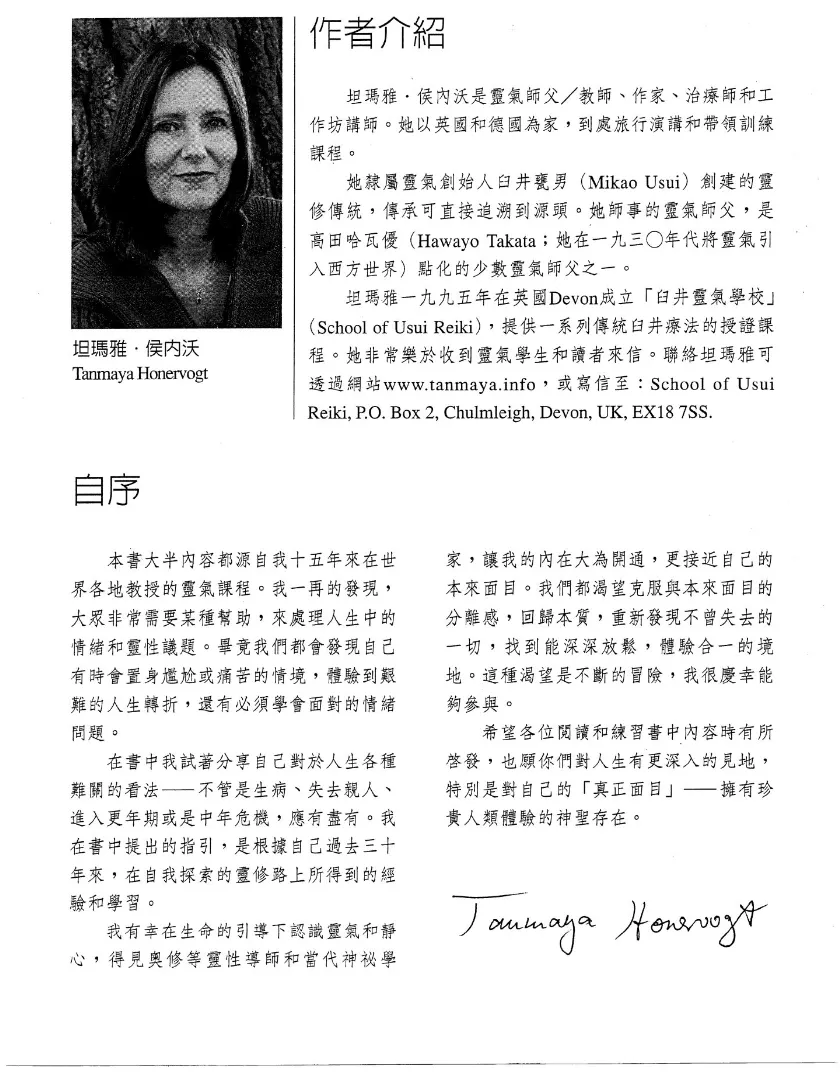 作者介紹
坦瑪雅．侯內沃是靈氣師父／教師、作家、治療師和工
作坊講師。她以英國和德國為家，到處旅行演講和帶領訓練
課程。
她隸屬靈氣創始人臼井甕男（Mikao Usui）創建的靈
修傳統，傳承可直接追溯到源頭。她師事的靈氣師父，是
高田哈瓦優（Hawayo Takata；她在一九三〇年代將靈氣引
入西方世界）點化的少數靈氣師父之一。
坦瑪雅一九九五年在英國Devon成立「臼井靈氣學校」
（School of Usui Reiki），提供一系列傳統臼井療法的授證課
程。她非常樂於收到靈氣學生和讀者來信。聯絡坦瑪雅可
透過網站www.tanmaya.info，或寫信至：School of Usui
Reiki, P.O. Box 2, Chulmleigh, Devon, UK, EX18 7SS.
坦瑪雅．侯內沃
Tanmaya Honervogt
自序
本書大半內容都源自我十五年來在世
界各地教授的靈氣課程。我一再的發現，
大眾非常需要某種幫助，來處理人生中的
情緒和靈性議題。畢竟我們都會發現自己
有時會置身尷尬或痛苦的情境，體驗到艱
難的人生轉折，還有必須學會面對的情緒
問題。
在書中我試著分享自己對於人生各種
難關的看法——不管是生病、失去親人、
進入更年期或是中年危機，應有盡有。我
在書中提出的指引，是根據自己過去三十
年來，在自我探索的靈修路上所得到的經
驗和學習。
我有幸在生命的引導下認識靈氣和靜
心，得見奧修等靈性導師和當代神祕學
家，讓我的內在大為開通，更接近自己的
本來面目。我們都渴望克服與本來面目的
分離感，回歸本質，重新發現不曾失去的
一切，找到能深深放鬆，體驗合一的境
地。這種渴望是不斷的冒險，我很慶幸能
夠參與。
希望各位閱讀和練習書中內容時有所
啓發，也願你們對人生有更深入的見地，
特別是對自己的「真正面目」——擁有珍
貴人類體驗的神聖存在。
Tanmaya Honervogt